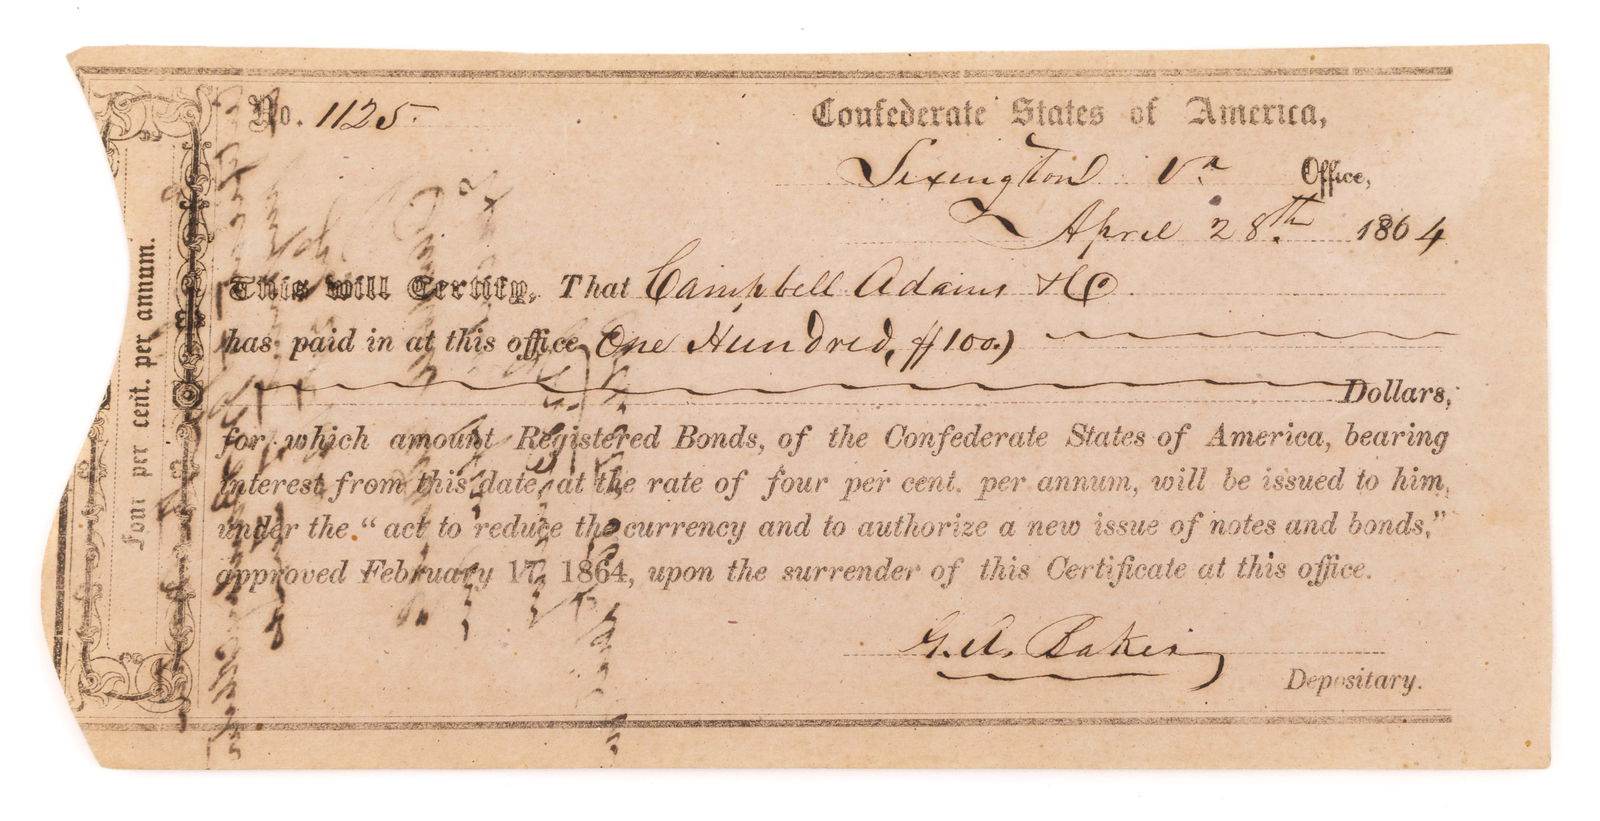 Four per cent. per annum.
No. 1125.
Confederate States of America,
Lexington Va Office,
April 28th 1864
This will Certify, That Campbell Adams & Co
has paid in at this office One Hundred, $100.)
Dollars,
for which amount Registered Bonds, of the Confederate States of America, bearing
interest from this date, at the rate of four per cent. per annum, will be issued to him,
under the “act to reduce the currency and to authorize a new issue of notes and bonds,”
approved February 17, 1864, upon the surrender of this Certificate at this office.
G. A. Baker
Depositary.